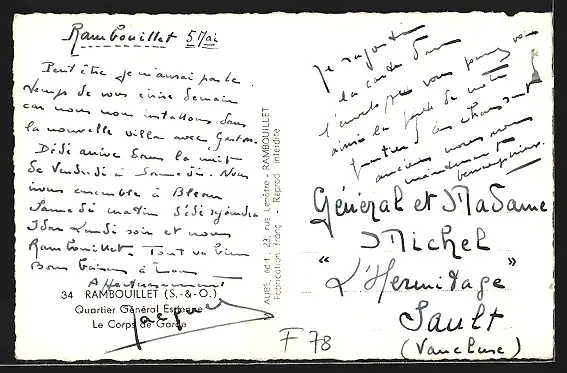 Rambouillet 5 Mai
Peut être je n'aurai pas le
temps de vous écrire demain
car nous nous installons dans
la nouvelle villa avec Gaston.
Dédé arrive dans la nuit
de Vendredi à Samedi. Nous
irons ensemble à
Samedi matin Dédé rejoindra
Lundi soir et nous
Rambouillet. Tout va bien
Bons baisers à tous
Affectueusement
Jacques
34 RAMBOUILLET (S.-&-O.)
Quartier Général Estienne
Le Corps de Garde
AUBE, édit., 23, rue Lenôtre - RAMBOUILLET
Fabrication franç. - Reprod. interdite
Je rajoute
la carte dans
l'enveloppe vous pouvez voir
ainsi la porte de notre
quartier des chasseurs
anciens nous avons
maintenant
Général et Madame
Michel
"L'Hermitage"
Sault
(Vaucluse)
F 78